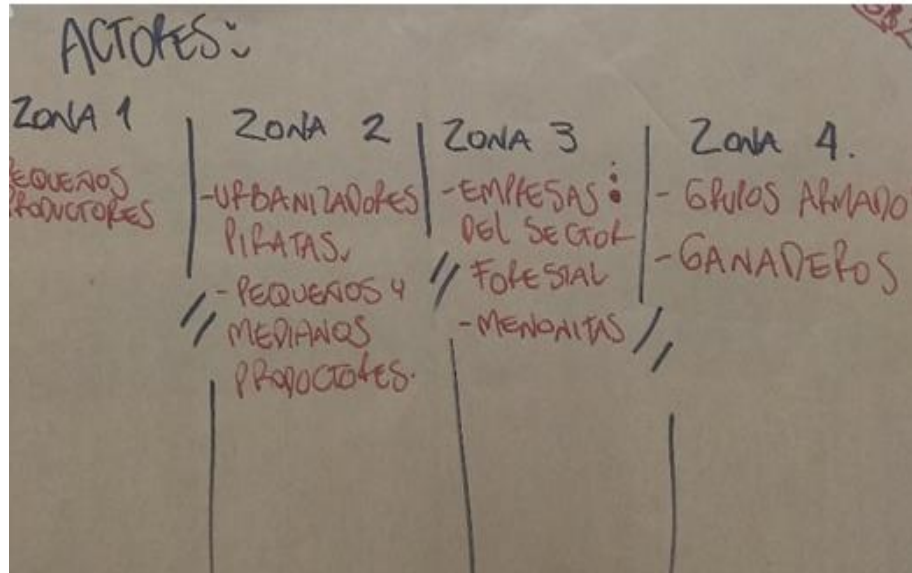 ACTORES:
ZONA 1
EQUEÑOS
RODUCTORES
ZONA 2
-URBANIZADORES
PIRATAS.
- PEQUEÑOS Y
MEDIANOS
PRODUCTORES.
ZONA 3
-EMPRESAS:
DEL SECTOR
FORESTAL
-MENONITAS
ZONA 4.
- GRUPOS ARMADO
- GANADEROS